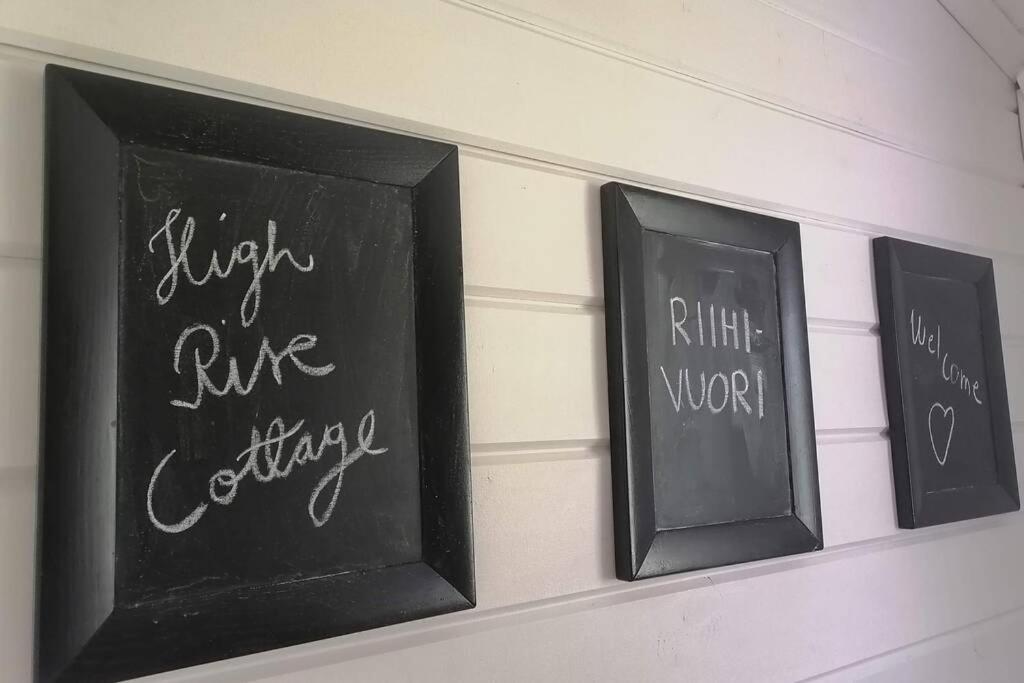 High
Rise
Cottage
RIIHI-
VUORI
Welcome